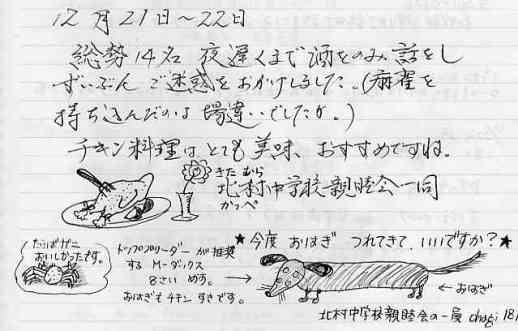 12月21日～22日
総勢14名 夜遅くまで酒をのみ、話をし
ずいぶん ご迷惑をおかけしました。(麻雀を
持ち込んだのは 場違いでしたか。)
チキン料理はとても美味、おすすめですね。
きたむら
北村中学校親睦会一同
かっぺ
★今度 おはぎ つれてきて、いいですか?★
たらばガニ
おいしかったです。
トップブリーダーが推奨
する M・ダックス
8さい めす。→
おはぎもチキン すきです。
←おはぎ
北村中学校親睦会の一員 chagi